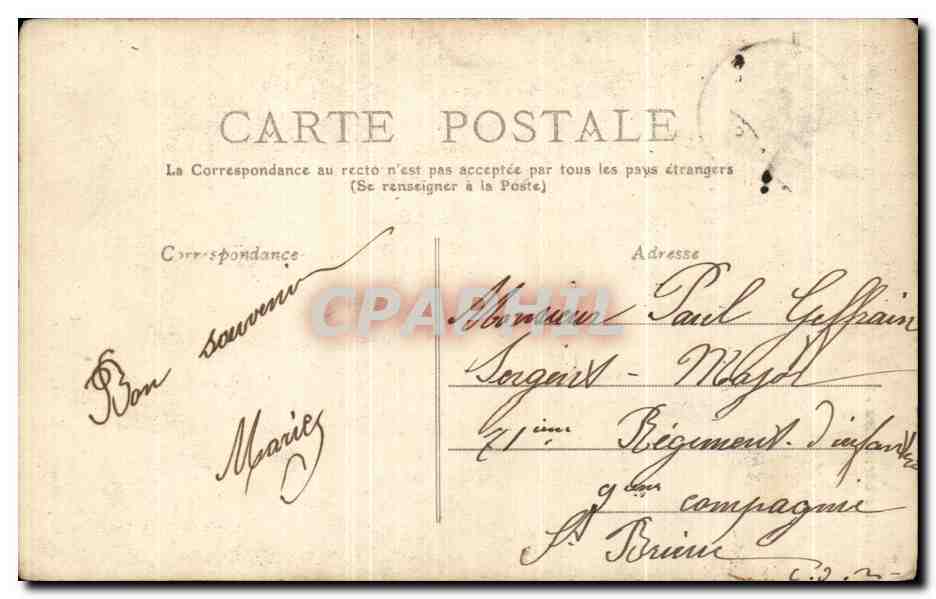 CARTE POSTALE
La Correspondance au recto n'est pas acceptée par tous les pays étrangers
(Se renseigner à la Poste)
Correspondance
Bon souvenir
Marie
Adresse
Monsieur Paul Geffrain
Sergent - Major
71ième Régiment d'infanterie
9ème compagnie
St Brieuc
CPAPHIL